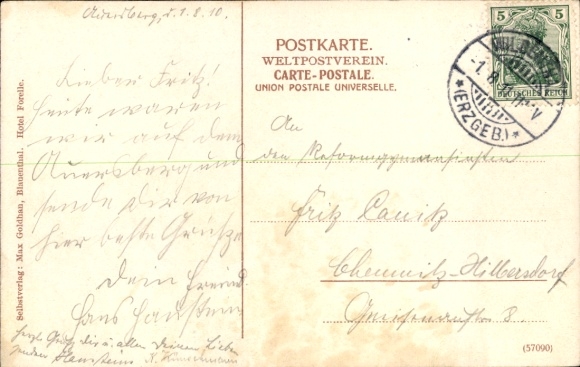 Auersberg, d. 1.8.10.
Lieber Fritz!
Heute waren
wir auf dem
Auersberg und
sende Dir von
hier beste Grüße
Dein Freund
Hans Haustein
herzl. Grüße Dir u. allen Deinen Lieben
Selbstverlag: Max Goldhan, Blauenthal. Hotel Forelle.
POSTKARTE.
WELTPOSTVEREIN.
CARTE-POSTALE.
UNION POSTALE UNIVERSELLE.
5 5
DEUTSCHES REICH
-1.8.
*(ERZGEB.)*
An
den Reformgymnasiasten
Fritz Canitz
Chemnitz-Hilbersdorf
8.
(57090)